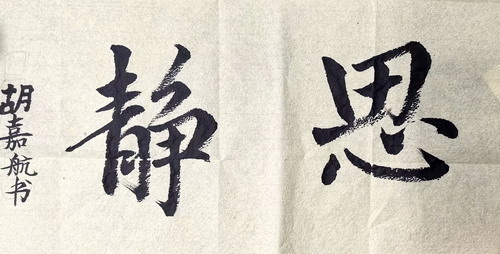 思静
胡嘉航书